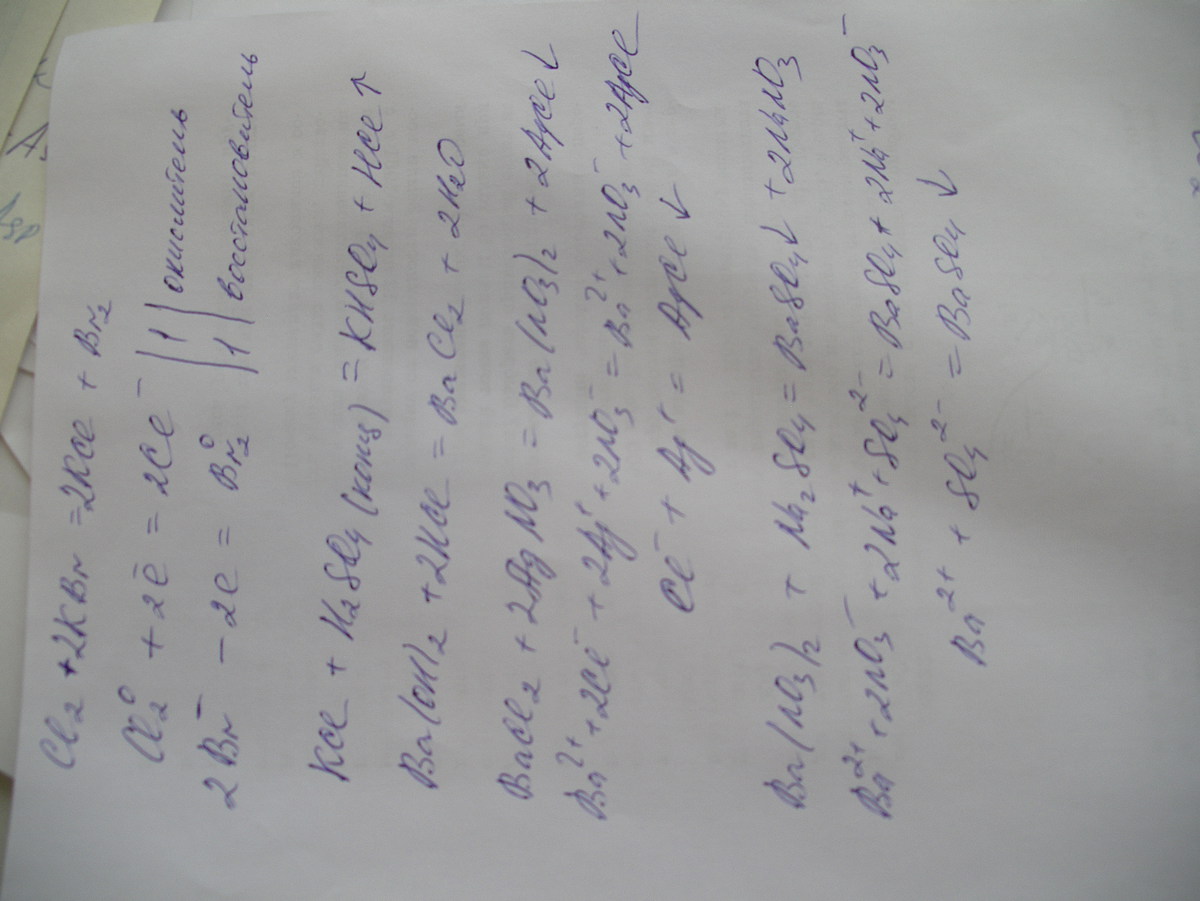 Cl₂ + 2KBr = 2KCl + Br₂
Cl₂⁰ + 2e̅ = 2Cl⁻ | 1 | окислитель
2Br⁻ - 2e = Br₂⁰ | 1 | восстановитель
KCl + H₂SO₄(конц) = KHSO₄ + HCl↑
Ba(OH)₂ + 2HCl = BaCl₂ + 2H₂O
BaCl₂ + 2AgNO₃ = Ba(NO₃)₂ + 2AgCl↓
Ba²⁺ + 2Cl⁻ + 2Ag⁺ + 2NO₃⁻ = Ba²⁺ + 2NO₃⁻ + 2AgCl
Cl⁻ + Ag⁺ = AgCl↓
Ba(NO₃)₂ + Na₂SO₄ = BaSO₄↓ + 2NaNO₃
Ba²⁺ + 2NO₃⁻ + 2Na⁺ + SO₄²⁻ = BaSO₄ + 2Na⁺ + 2NO₃⁻
Ba²⁺ + SO₄²⁻ = BaSO₄↓